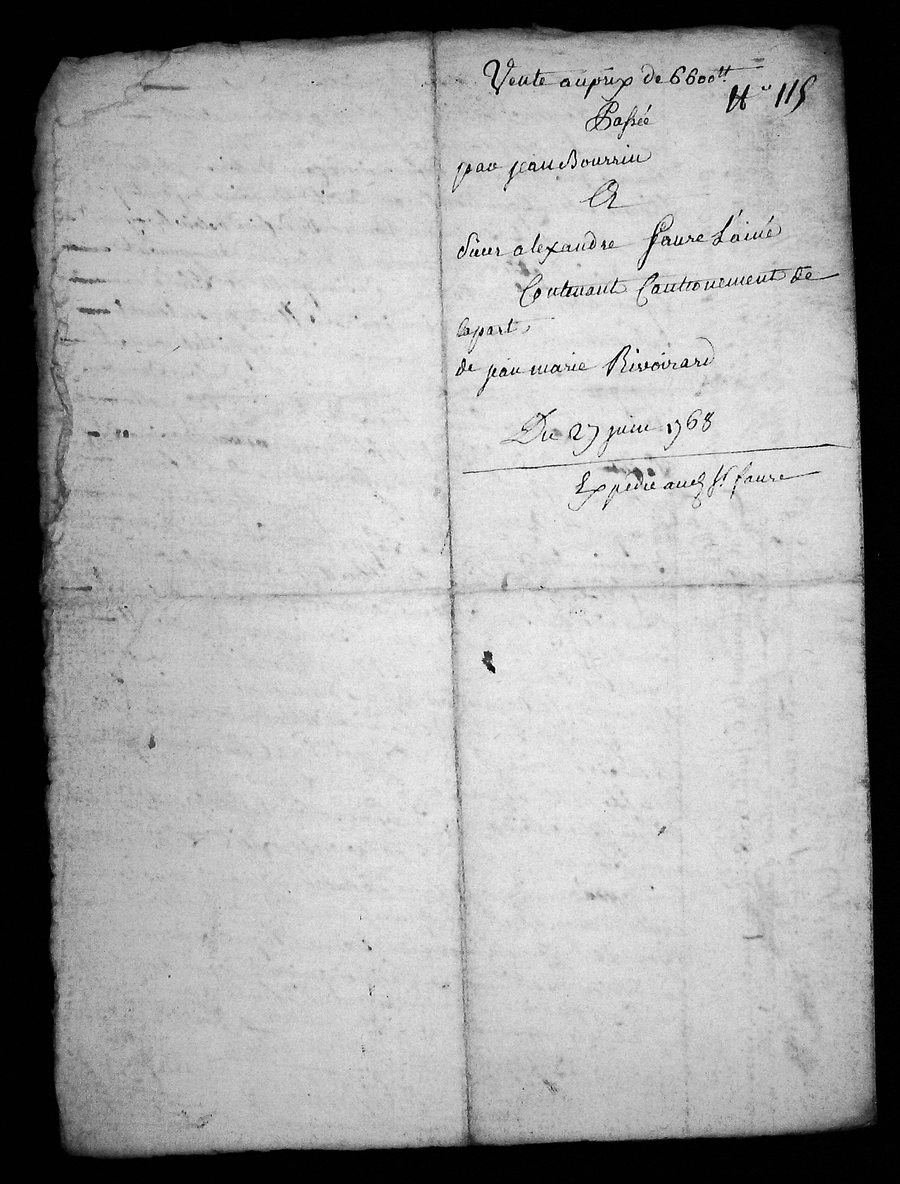 Vente au prix de 6600 ʰ
N° 115
Passée
par jean Bourrin
A
sieur alexandre faure L'ainé
Contenant Cautionement de
la part
de jean marie Rivoirard
Du 27 juin 1768
Expedié aud. Sr. faure